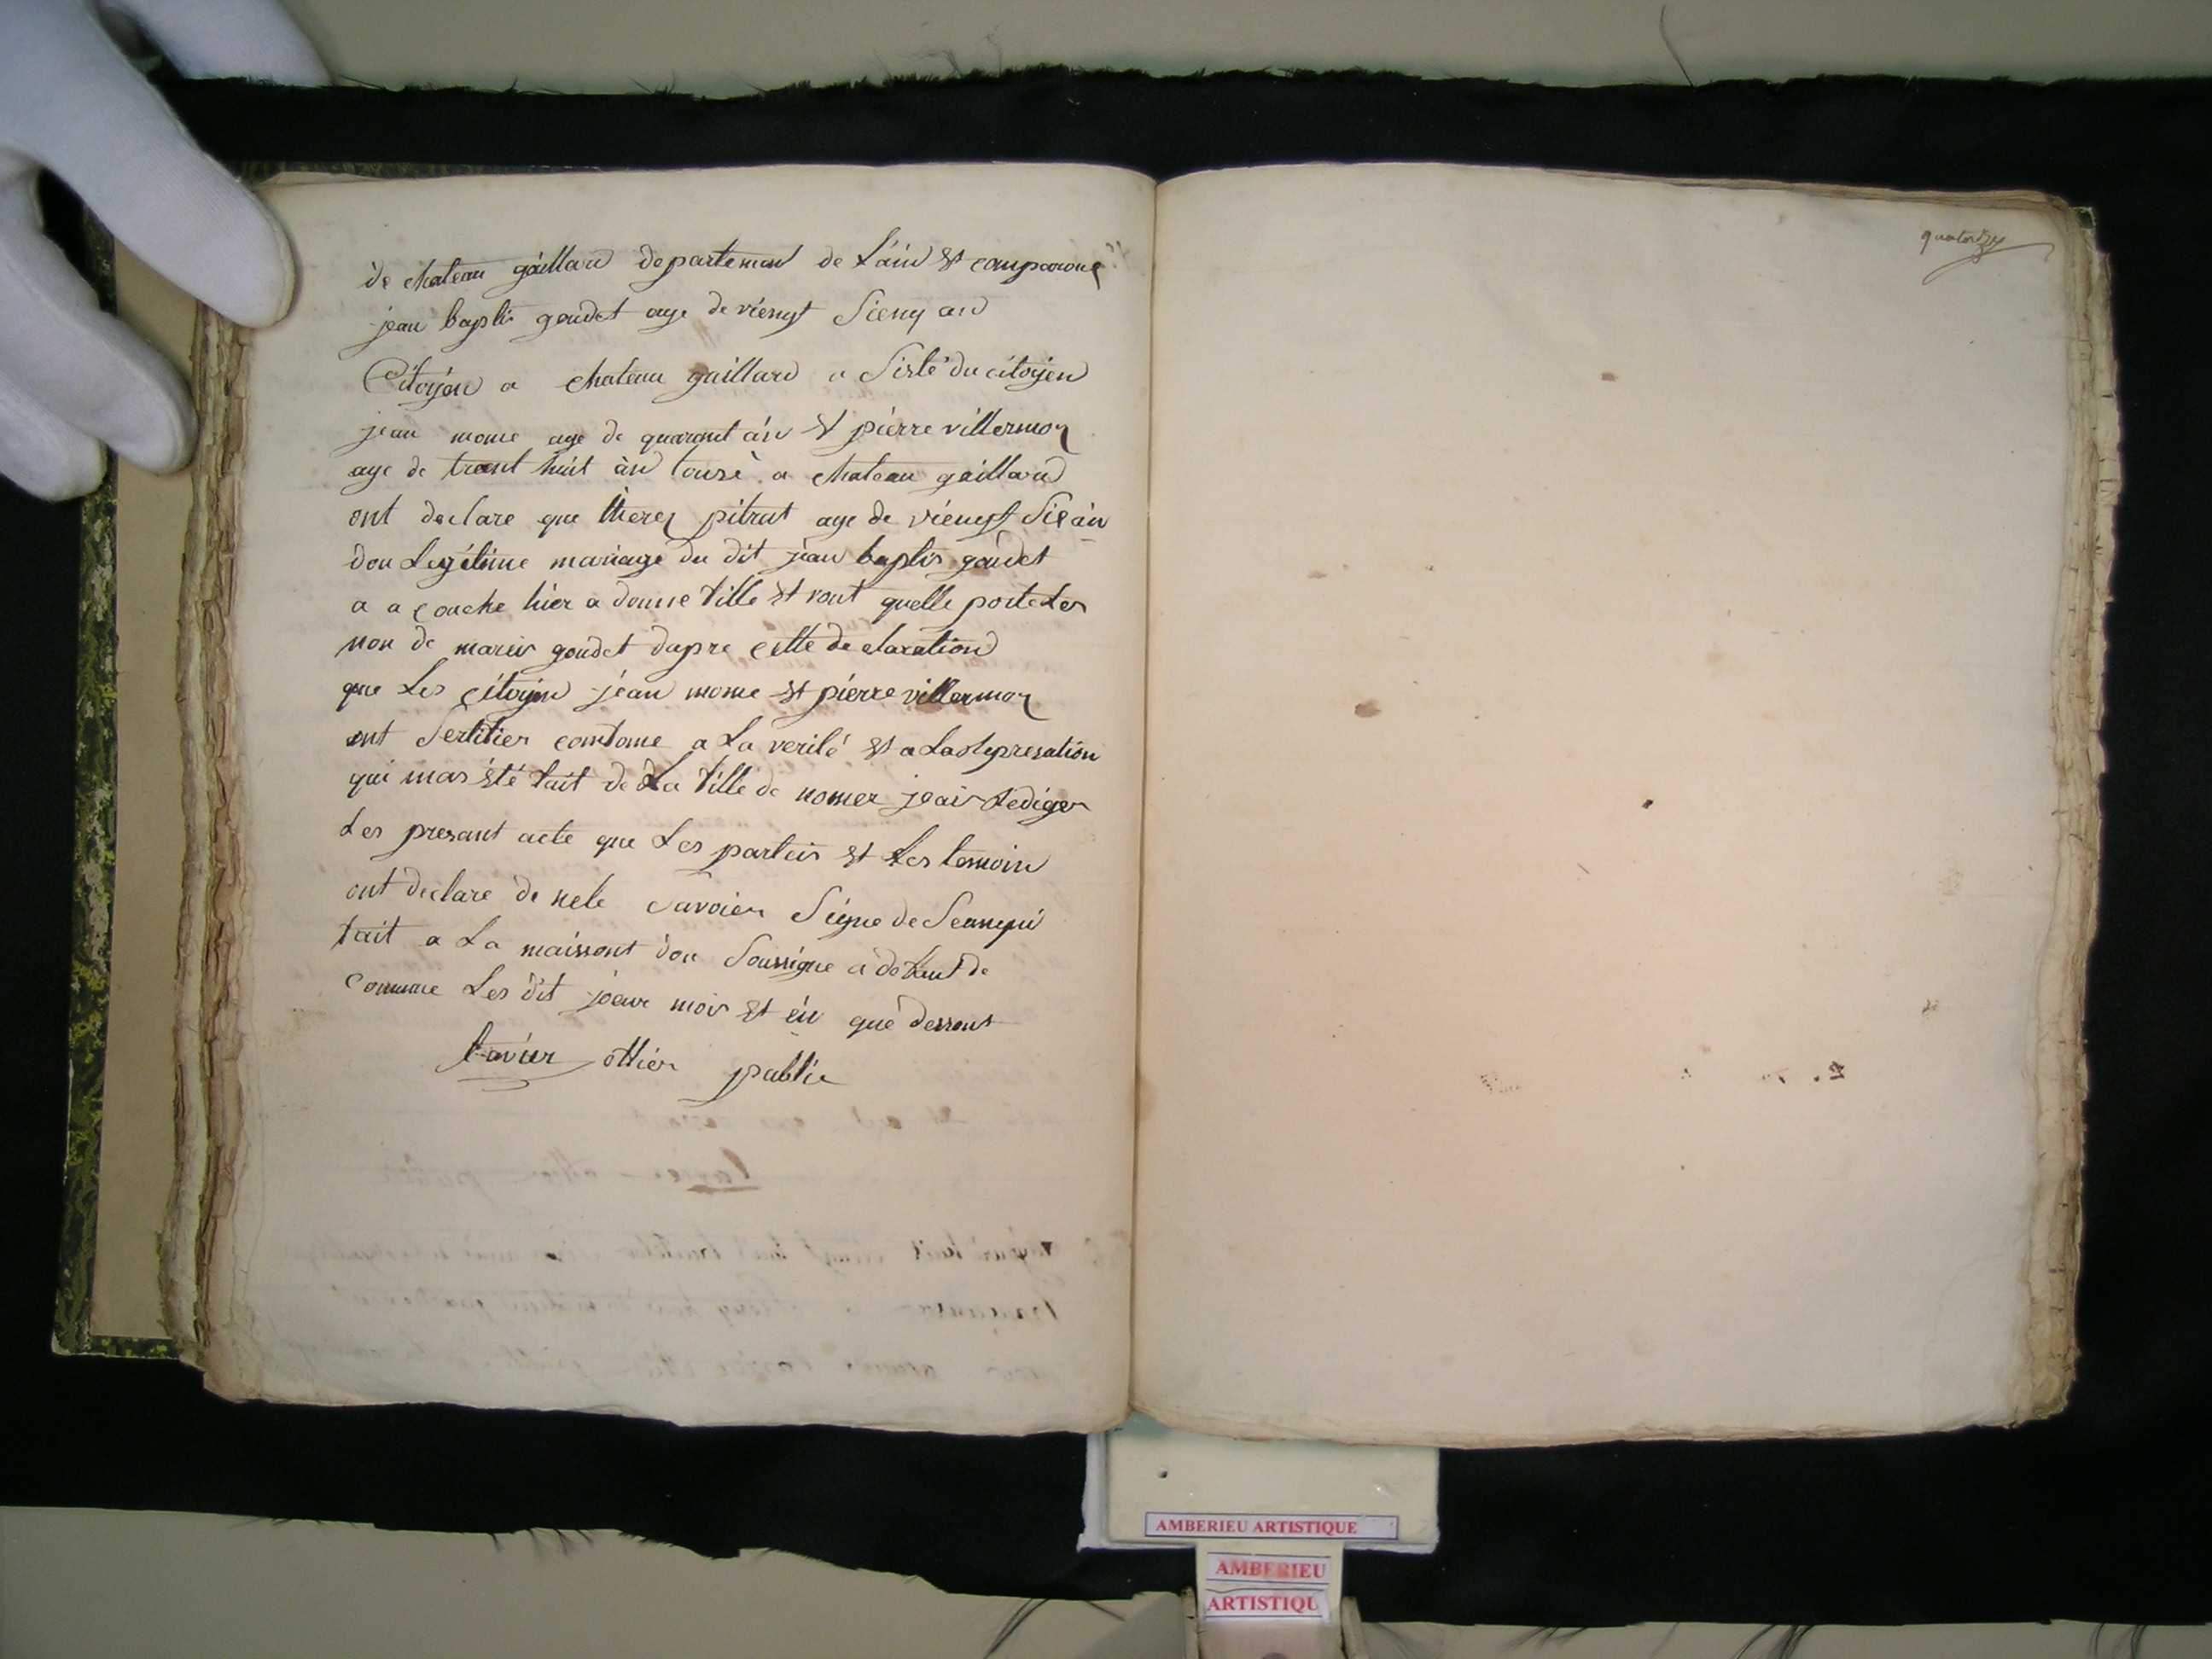 de chateau gaillard departement de Lain et comparone
jean baptis goudet age de viengt sienq an
Citoyen a chateau gaillard a sisté du citoyen
jean mome age de quarant an et pierre villermoz
age de trant huit an tousè a chateau gaillard
ont declare que therez pitrat age de viengt sixan
don Legétime mariage du dit jean baptis goudet
a a couche hier a donne fille et vont quelle porte Les
non de marier goudet dapre cette declaration
que Les citoyen jean mome et pierre villermoz
ont sertifier comfome a La verité et a La
qui mas été fait de La fille de nomer jeais Rediger
Les presant acte que Les parteis et Les temoin
ont declare de nele savoier signe de
fait a La maissont don soussigne a defaut de
commune Les dit joeur mois et én que dessout
tavier offier public
quatorze
AMBERIEU ARTISTIQUE
AMBERIEU
ARTISTIQU